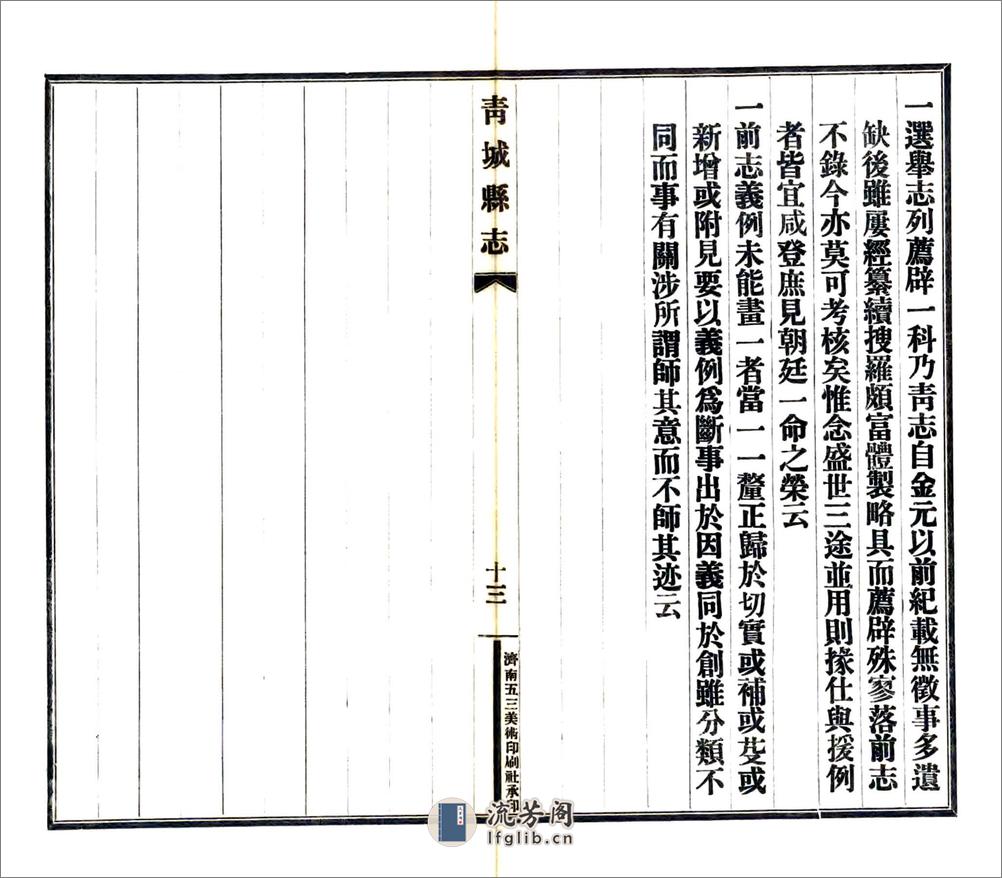 一選舉志列薦辟一科乃靑志自金元以前紀載無徵事多遺
缺後雖屢經纂續搜羅頗富體製略具而薦辟殊寥落前志
不錄今亦莫可考核矣惟念盛世三途並用則掾仕與援例
者皆宜咸登庶見朝廷一命之榮云
一前志義例未能畫一者當一一釐正歸於切實或補或芟或
新增或附見要以義例爲斷事出於因義同於創雖分類不
同而事有關涉所謂師其意而不師其迹云
靑城縣志
十三
濟南五三美術印刷社承印
流芳阁
lfglib.cn